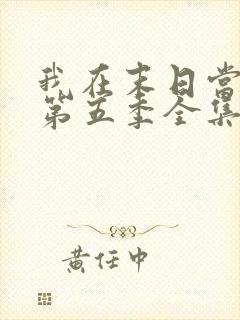 我在末日当
第五季全集
黄任中